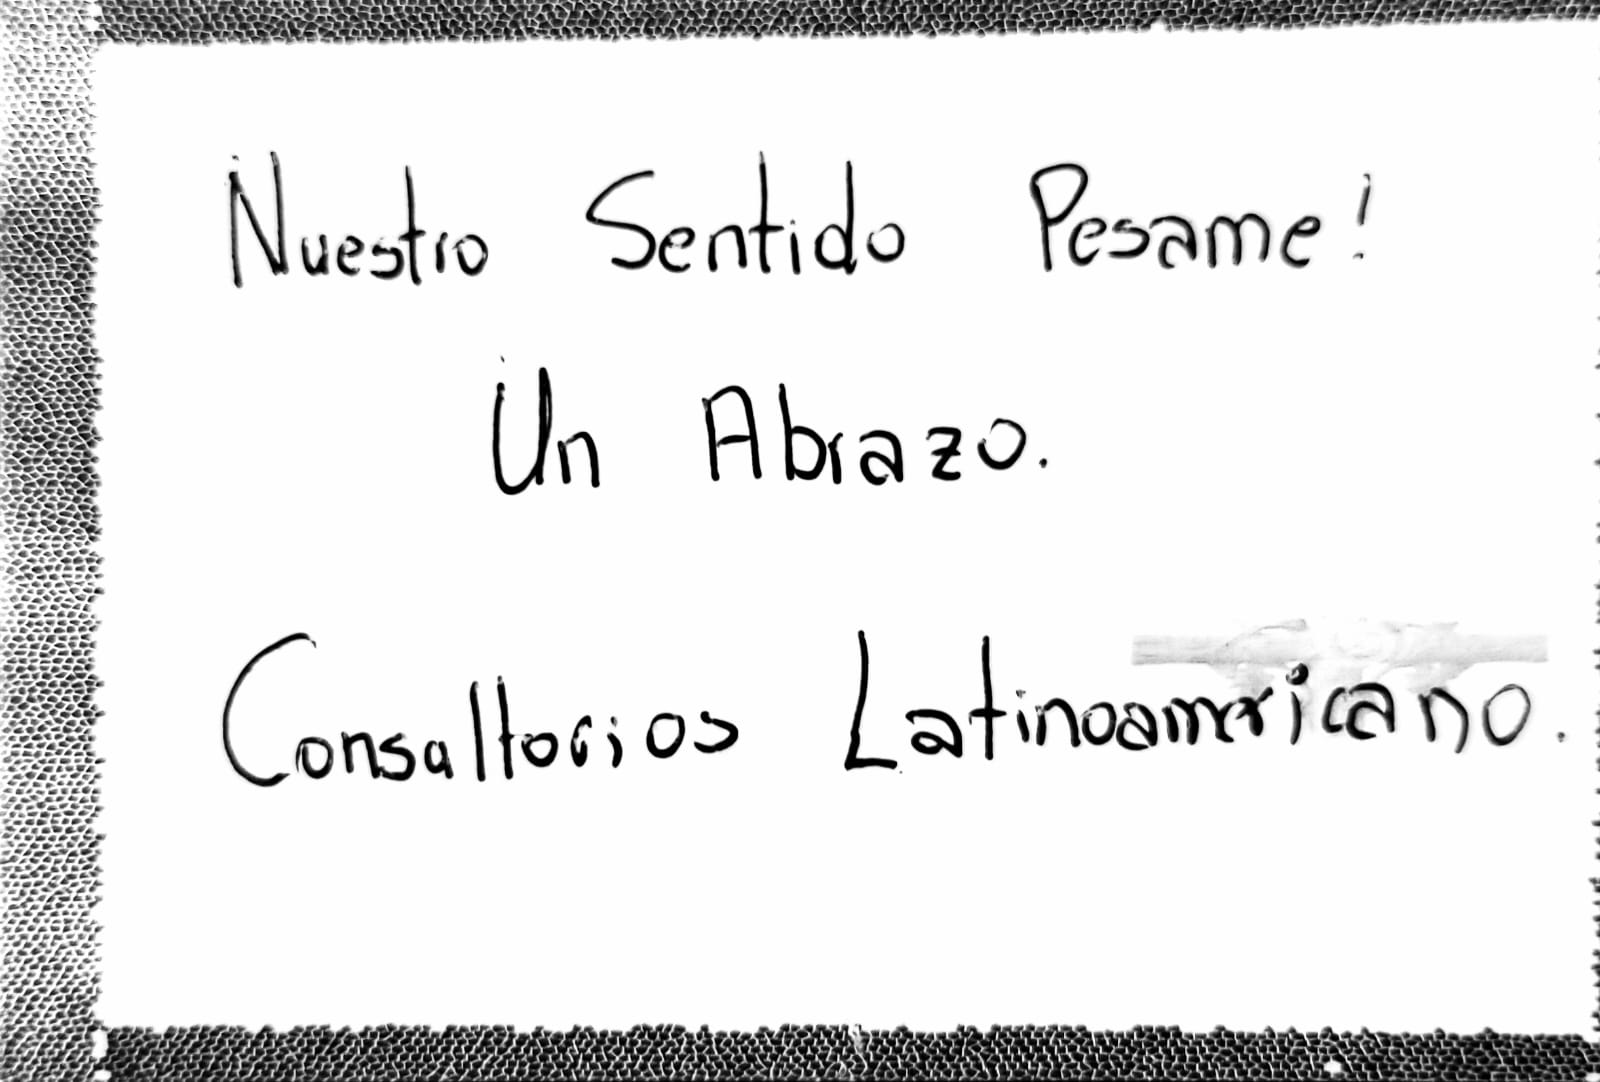 Nuestro Sentido Pesame!
Un Abrazo.
Consaltorios Latinoamericano.